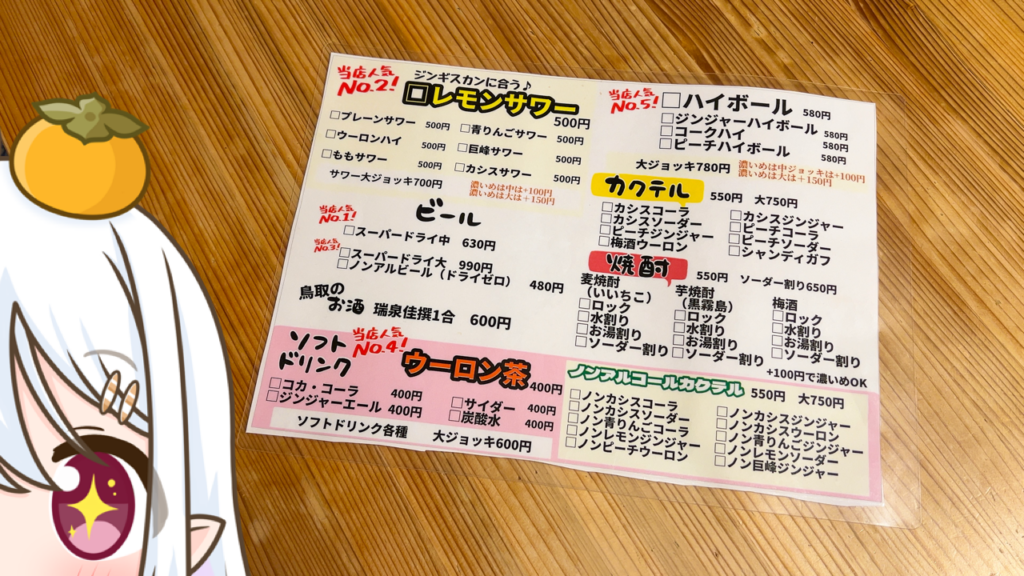 当店人気
No.2!
ジンギスカンに合う♪
□レモンサワー 500円
□プレーンサワー 500円
□ウーロンハイ 500円
□ももサワー 500円
□青りんごサワー 500円
□巨峰サワー 500円
□カシスサワー 500円
サワー大ジョッキ700円
濃いめは中は+100円
濃いめは大は+150円
当店人気
No.1!
ビール
□スーパードライ中 630円
当店人気
No.3!
□スーパードライ大 990円
□ノンアルビール(ドライゼロ) 480円
鳥取の
お酒 瑞泉佳撰1合 600円
ソフト
ドリンク
当店人気
No.4!
ウーロン茶 400円
□コカ・コーラ 400円
□ジンジャーエール 400円
□サイダー 400円
□炭酸水 400円
ソフトドリンク各種 大ジョッキ600円
当店人気
No.5!
□ハイボール 580円
□ジンジャーハイボール 580円
□コークハイ 580円
□ピーチハイボール 580円
大ジョッキ780円
濃いめは中ジョッキは+100円
濃いめは大は+150円
カクテル 550円 大750円
□カシスコーラ
□カシスソーダー
□ピーチジンジャー
□梅酒ウーロン
□カシスジンジャー
□ピーチコーラー
□ピーチソーダー
□シャンディガフ
焼酎 550円 ソーダー割り650円
麦焼酎
(いいちこ)
□ロック
□水割り
□お湯割り
□ソーダー割り
芋焼酎
(黒霧島)
□ロック
□水割り
□お湯割り
□ソーダー割り
梅酒
□ロック
□水割り
□お湯割り
□ソーダー割り
+100円で濃いめOK
ノンアルコールカクテル 550円 大750円
□ノンカシスコーラ
□ノンカシスソーダー
□ノン青りんごコーラ
□ノンレモンジンジャー
□ノンピーチウーロン
□ノンカシスジンジャー
□ノンカシスウーロン
□ノン青りんごジンジャー
□ノンレモンソーダー
□ノン巨峰ジンジャー